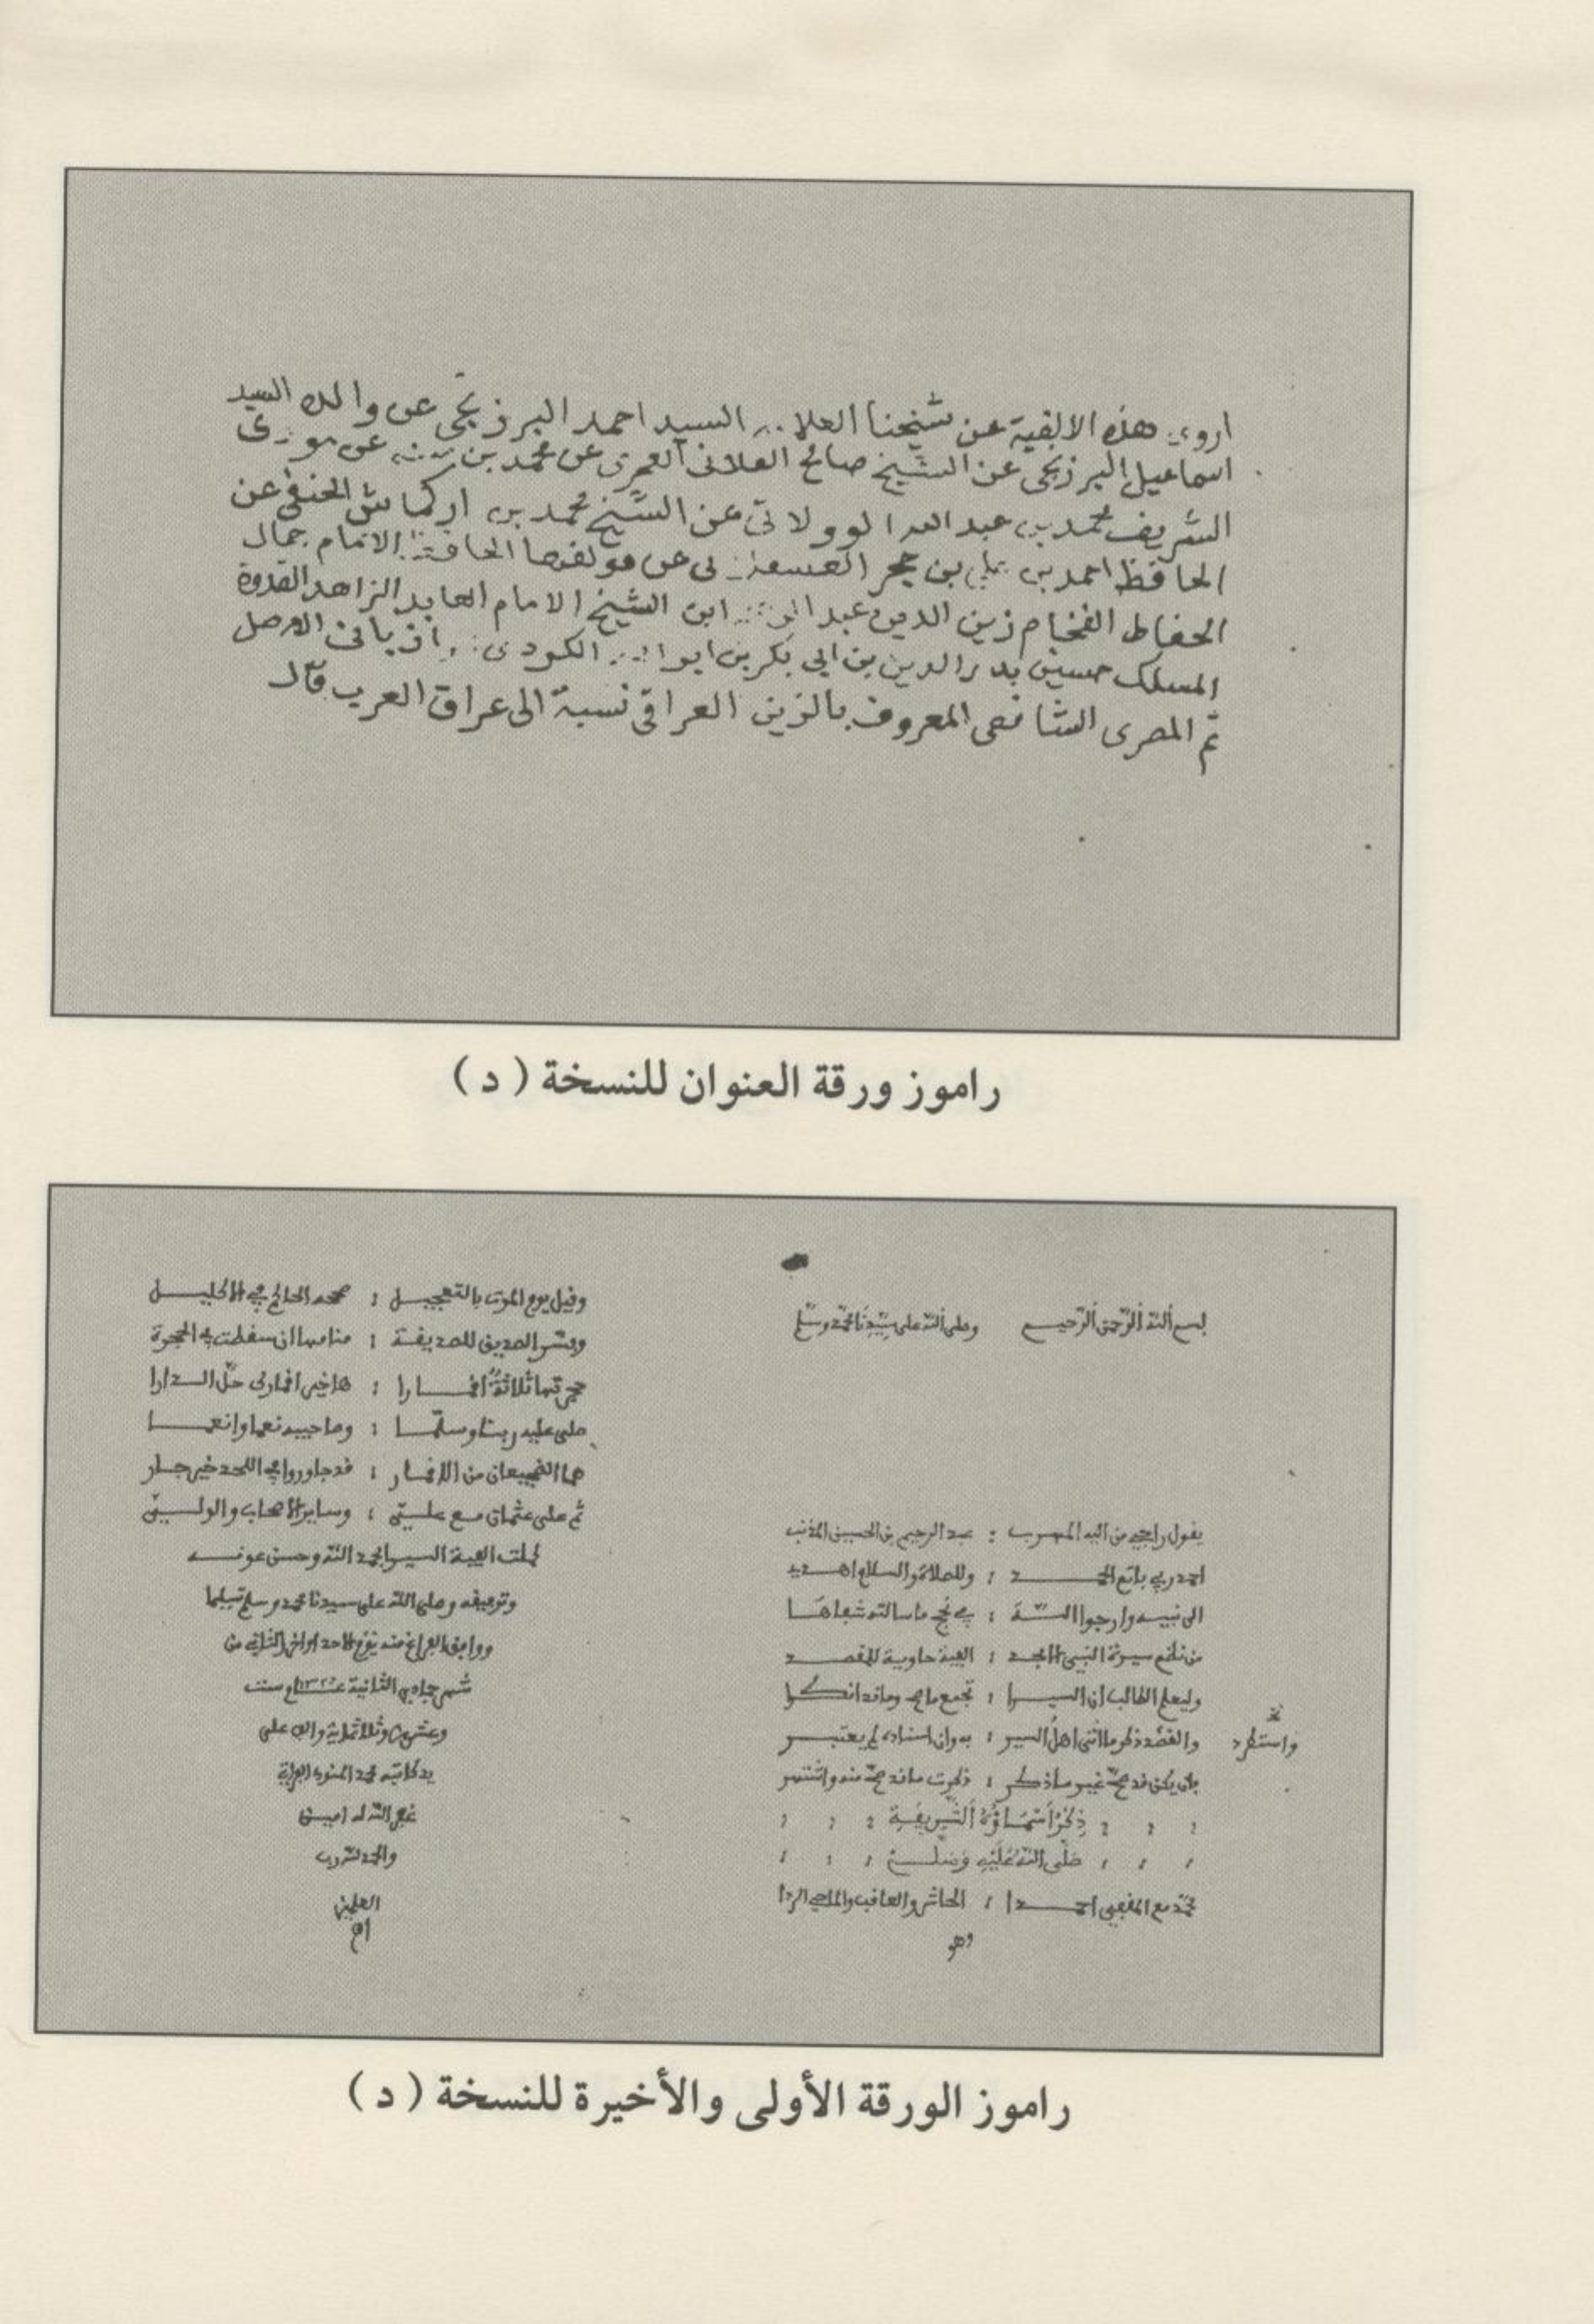 اروى هذه الالفية عن شيخنا العلا السيد احمد البرزنجى عن والده السيد
اسماعيل البرزنجى عن الشيخ صالح الفلانى العمرى عن محمد بن عن مولاى
الشريف محمد بن عبد الله الوولاتى عن الشيخ محمد بن اركماش الحنفى عن
الحافظ احمد بن على بن حجر العسقلانى عن مولفها الحافظ الامام جمال
الحفاظ الفخام زين الدين عبد ابن الشيخ الامام العابد الزاهد القدوة
المسلك حسين بدر الدين بن ابى بكر بن الكردى الاصل
ثم المصرى الشافعى المعروف بالزين العراقى نسبة الى عراق العرب قال
راموز ورقة العنوان للنسخة ( د )
بسم الله الرحمن الرحيم وصلى الله على سيدنا محمد وسلم
يقول راجى من اليه المهرب : عبد الرحيم بن الحسين المذنب
احمد ربى باتم الحمد : وللصلاة والسلام اهدى
الى نبيه وارجوا الله : فى نجح ما سالته شفاها
من نظم سيرة النبى الامجد : الفية حاوية للمقصد
وليعلم الطالب ان السيرا : تجمع ما صح وما قد انكرا
والقصد ذكر ما اتى اهل السير : به وان اسناده لم يعتبر
واستطرد
فان يكن قد صح غير ما ذكر : ذكرت ما قد صح منه واشتهر
ذكر اسماؤه الشريفة
صلى الله عليه وسلم
محمد مع المقفى احمدا : الحاشر والعاقب والماحى الردا
وهو
وقيل يوم الموت بالتعجيل : صححه الحاكم فى الاكليل
وبشر الصديق للصديقة : مناما ان سقطت فى الحجرة
حجرتها ثلاثة اقمارا : ها خير اقمارك حل الدارا
صلى عليه ربنا وسلما : وصاحبيه نعما وانعما
هما الضجيعان من الاقمار : قد جاوروا فى اللحد خير جار
ثم على عثمان مع على : وساير الاصحاب والولى
كملت الفية السير بحمد الله وحسن عونه
وتوفيقه وصلى الله على سيدنا محمد وسلم تسليما
ووافق الفراغ منه يوم الاحد الثانى من
شهر جمادى الثانية سنة
وعشرين وثلاثماية والف على
يد كاتبه محمد
غفر الله له امين
والحمد لله رب
العلمين
راموز الورقة الأولى والأخيرة للنسخة ( د )